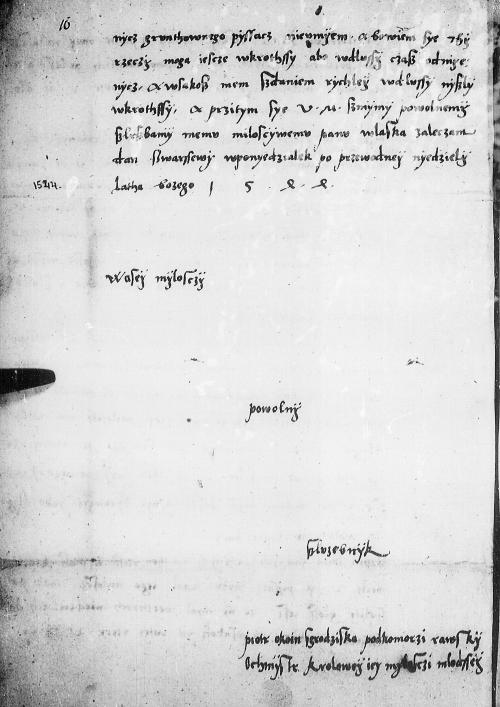 16
nycz grunthownego pyssacz nieumyem. A bowiem sye thy
rzeczy moga iescze wkrothssy abo wdlussy czass odmye
nycz. A wsakosz mem sdaniem rychley wdlussy nysly
wkrothssy. A przitym sye V. M. smymy powolnemy
sluzbamy memu miloscywemu panu wlaska zaleczam
dan Swarssewy wponyedzialek po przewodney nyedziely
1544. latha bozego 1 5 4 4
Wasey myloszczy
powolny
sluzebnyk
piotr okuin sgrodziska podkomorzi rawsky
Ochmystr Krolowey iey myloszczi mlodssey